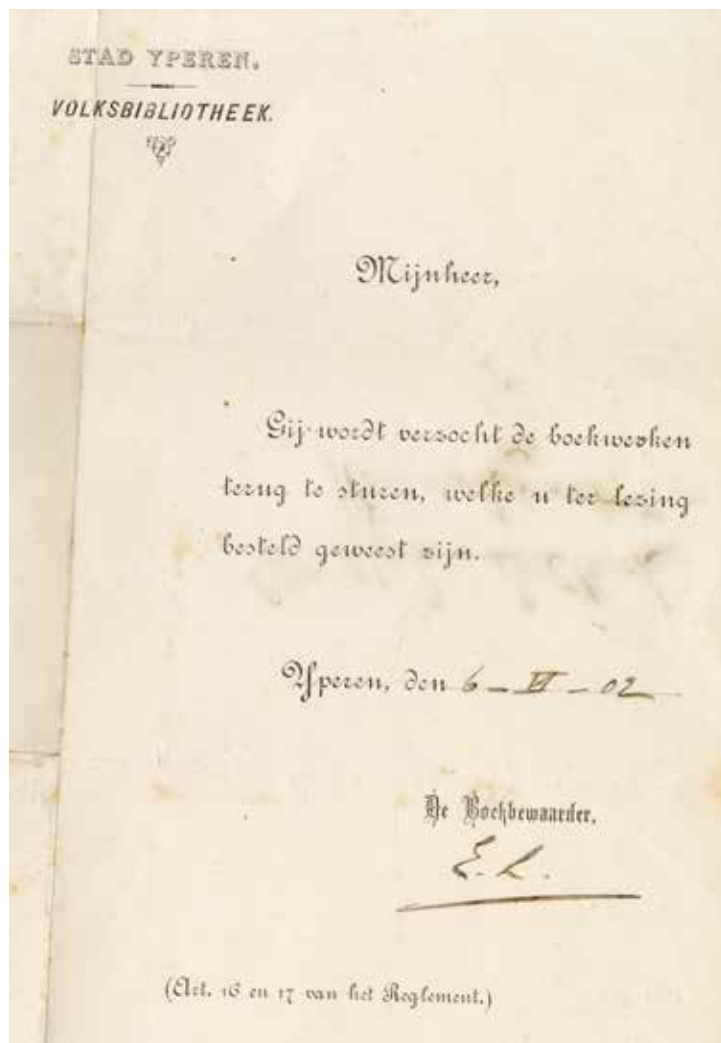 STAD YPEREN.
VOLKSBIBLIOTHEEK.
Mijnheer,
Gij wordt verzocht de boekwerken
terug te sturen, welke u ter lezing
besteld geweest zijn.
Yperen, den 6 - VI - 02
De Boekbewaarder,
E. L.
(Art. 16 en 17 van het Reglement.)